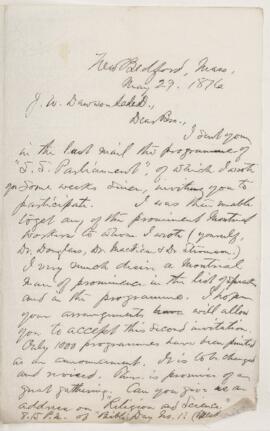 New Bedford, Mass,
May 29, 1876
J. W. Dawson
Dear Bro.,
I sent you
in the last mail the programme of
"S. S. Parliament", of which I wrote
you some weeks since, inviting you to
participate. I was then unable
to get any of the prominent Montreal
to whom I wrote (yourself,
Dr. Douglas, Dr. &
I very much desire a Montreal
man of prominence in the list of speakers
and in the programme. I hope
your arrangements will allow
you to accept this second invitation.
Only 1000 programmes have been printed
as an announcement. It is to be changed
and revised. There is promise of a
great gathering. Can you give us an
address on "Religion and Science
8. P.M. of Bible Day